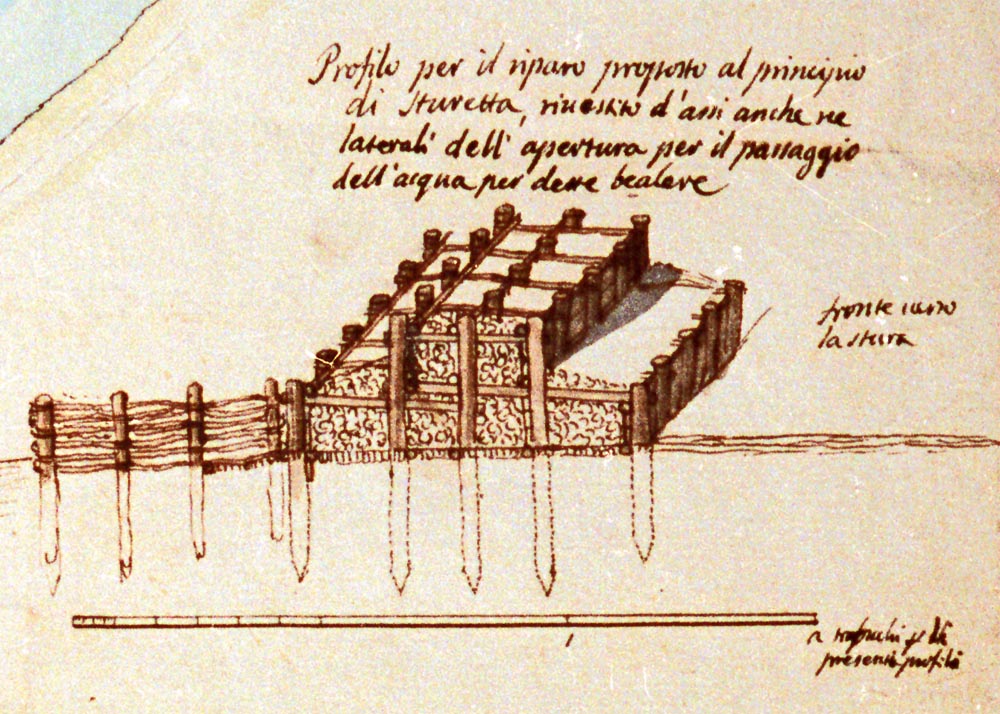 Profilo per il riparo proposto al principio
di Sturetta, rivestito d'assi anche ne
laterali dell'apertura per il passaggio
dell'acqua per dette bealere
fronte verso
la stura
1
2 trabuchi
presente profilo